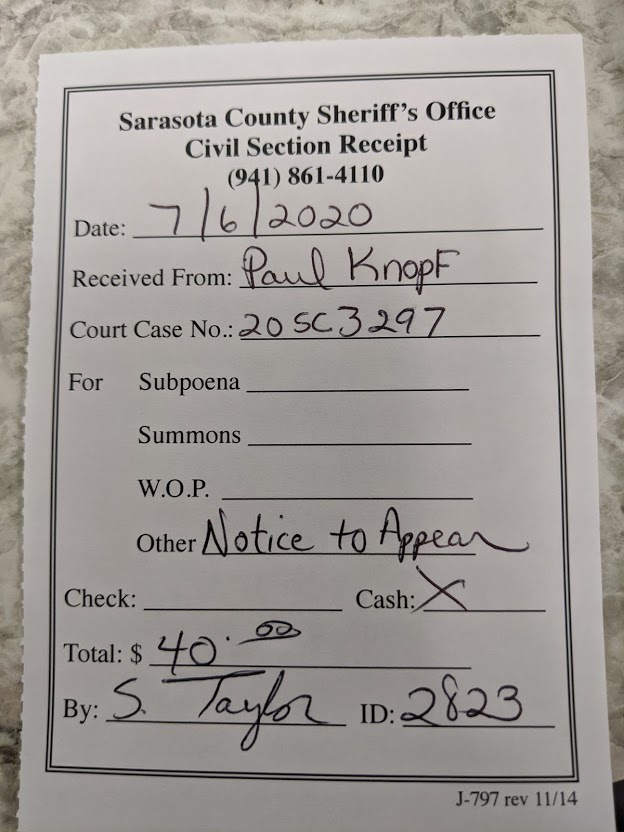 Sarasota County Sheriff's Office
Civil Section Receipt
(941) 861-4110
Date: 7/6/2020
Received From: Paul Knopf
Court Case No.: 20 SC 3297
For Subpoena
Summons
W.O.P.
Other Notice to Appear
Check: Cash: X
Total: $ 40.00
By: S. Taylor ID: 2823
J-797 rev 11/14